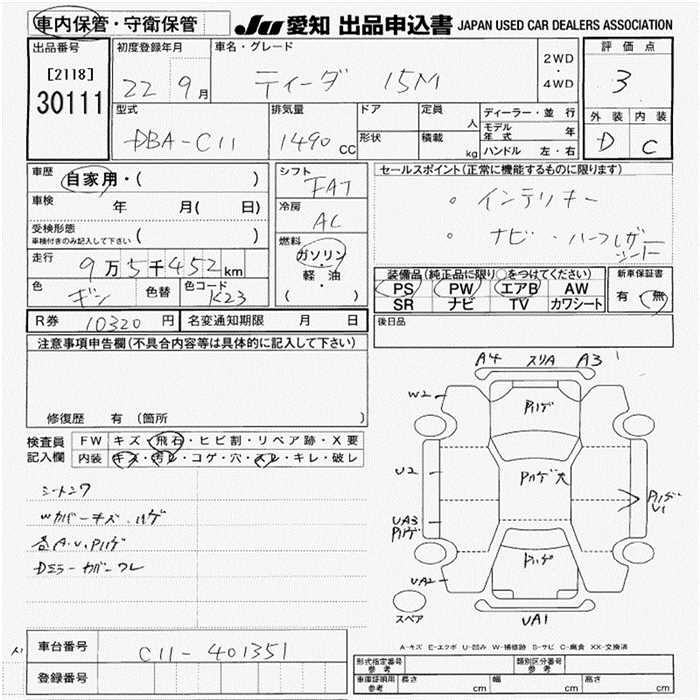 車内保管・守衛保管
JU 愛知 出品申込書 JAPAN USED CAR DEALERS ASSOCIATION
出品番号
[2118]
30111
初度登録年月
22 9月
車名・グレード
ティーダ 15M
2WD
・
4WD
評価点
3
外装 内装
D C
型式
DBA-C11
排気量
1490 cc
ドア
形状
定員
人
積載
kg
ディーラー・並行
モデル年式 年
ハンドル 左・右
車歴
自家用・( )
車検 年 月( 日)
受検形態
車検付きのみ記入して下さい ( )
走行
9万5千452km
色
ギン
色替
色コード
K23
シフト
FAT
冷房
AC
燃料
ガソリン
・
軽・油
( )
セールスポイント(正常に機能するものに限ります)
。インテリキー
。ナビ・ハーフレザーシート
装備品(純正品に限り○をつけてください)
PS PW エアB AW
SR ナビ TV カワシート
新車保証書
有 無
R券 10320円
名変通知期限 月 日
後日品
注意事項申告欄(不具合内容等は具体的に記入して下さい)
修復歴 有 (箇所 )
検査員
記入欄
FW キズ・飛石・ヒビ割・リペア跡・X要
内装 キズ・汚レ・コゲ・穴・スレ・キレ・破レ
シートシワ
Wカバーキズ・ハゲ
各A・U、Pハゲ
Dミラーカバーワレ
A4 スリA A3
W2
Pハゲ
U2
Pハゲ大
Pハゲ
U1
UA3
Pハゲ
Pハゲ
UA2
UA1
スペア
A-キズ E-エクボ U-凹み W-補修跡 S-サビ C-腐食 XX-交換済
車台番号
C11-401351
登録番号
形式指定番号
参考
類別区分番号
参考
車庫証明用
参考
長さ cm
幅 cm
高さ cm